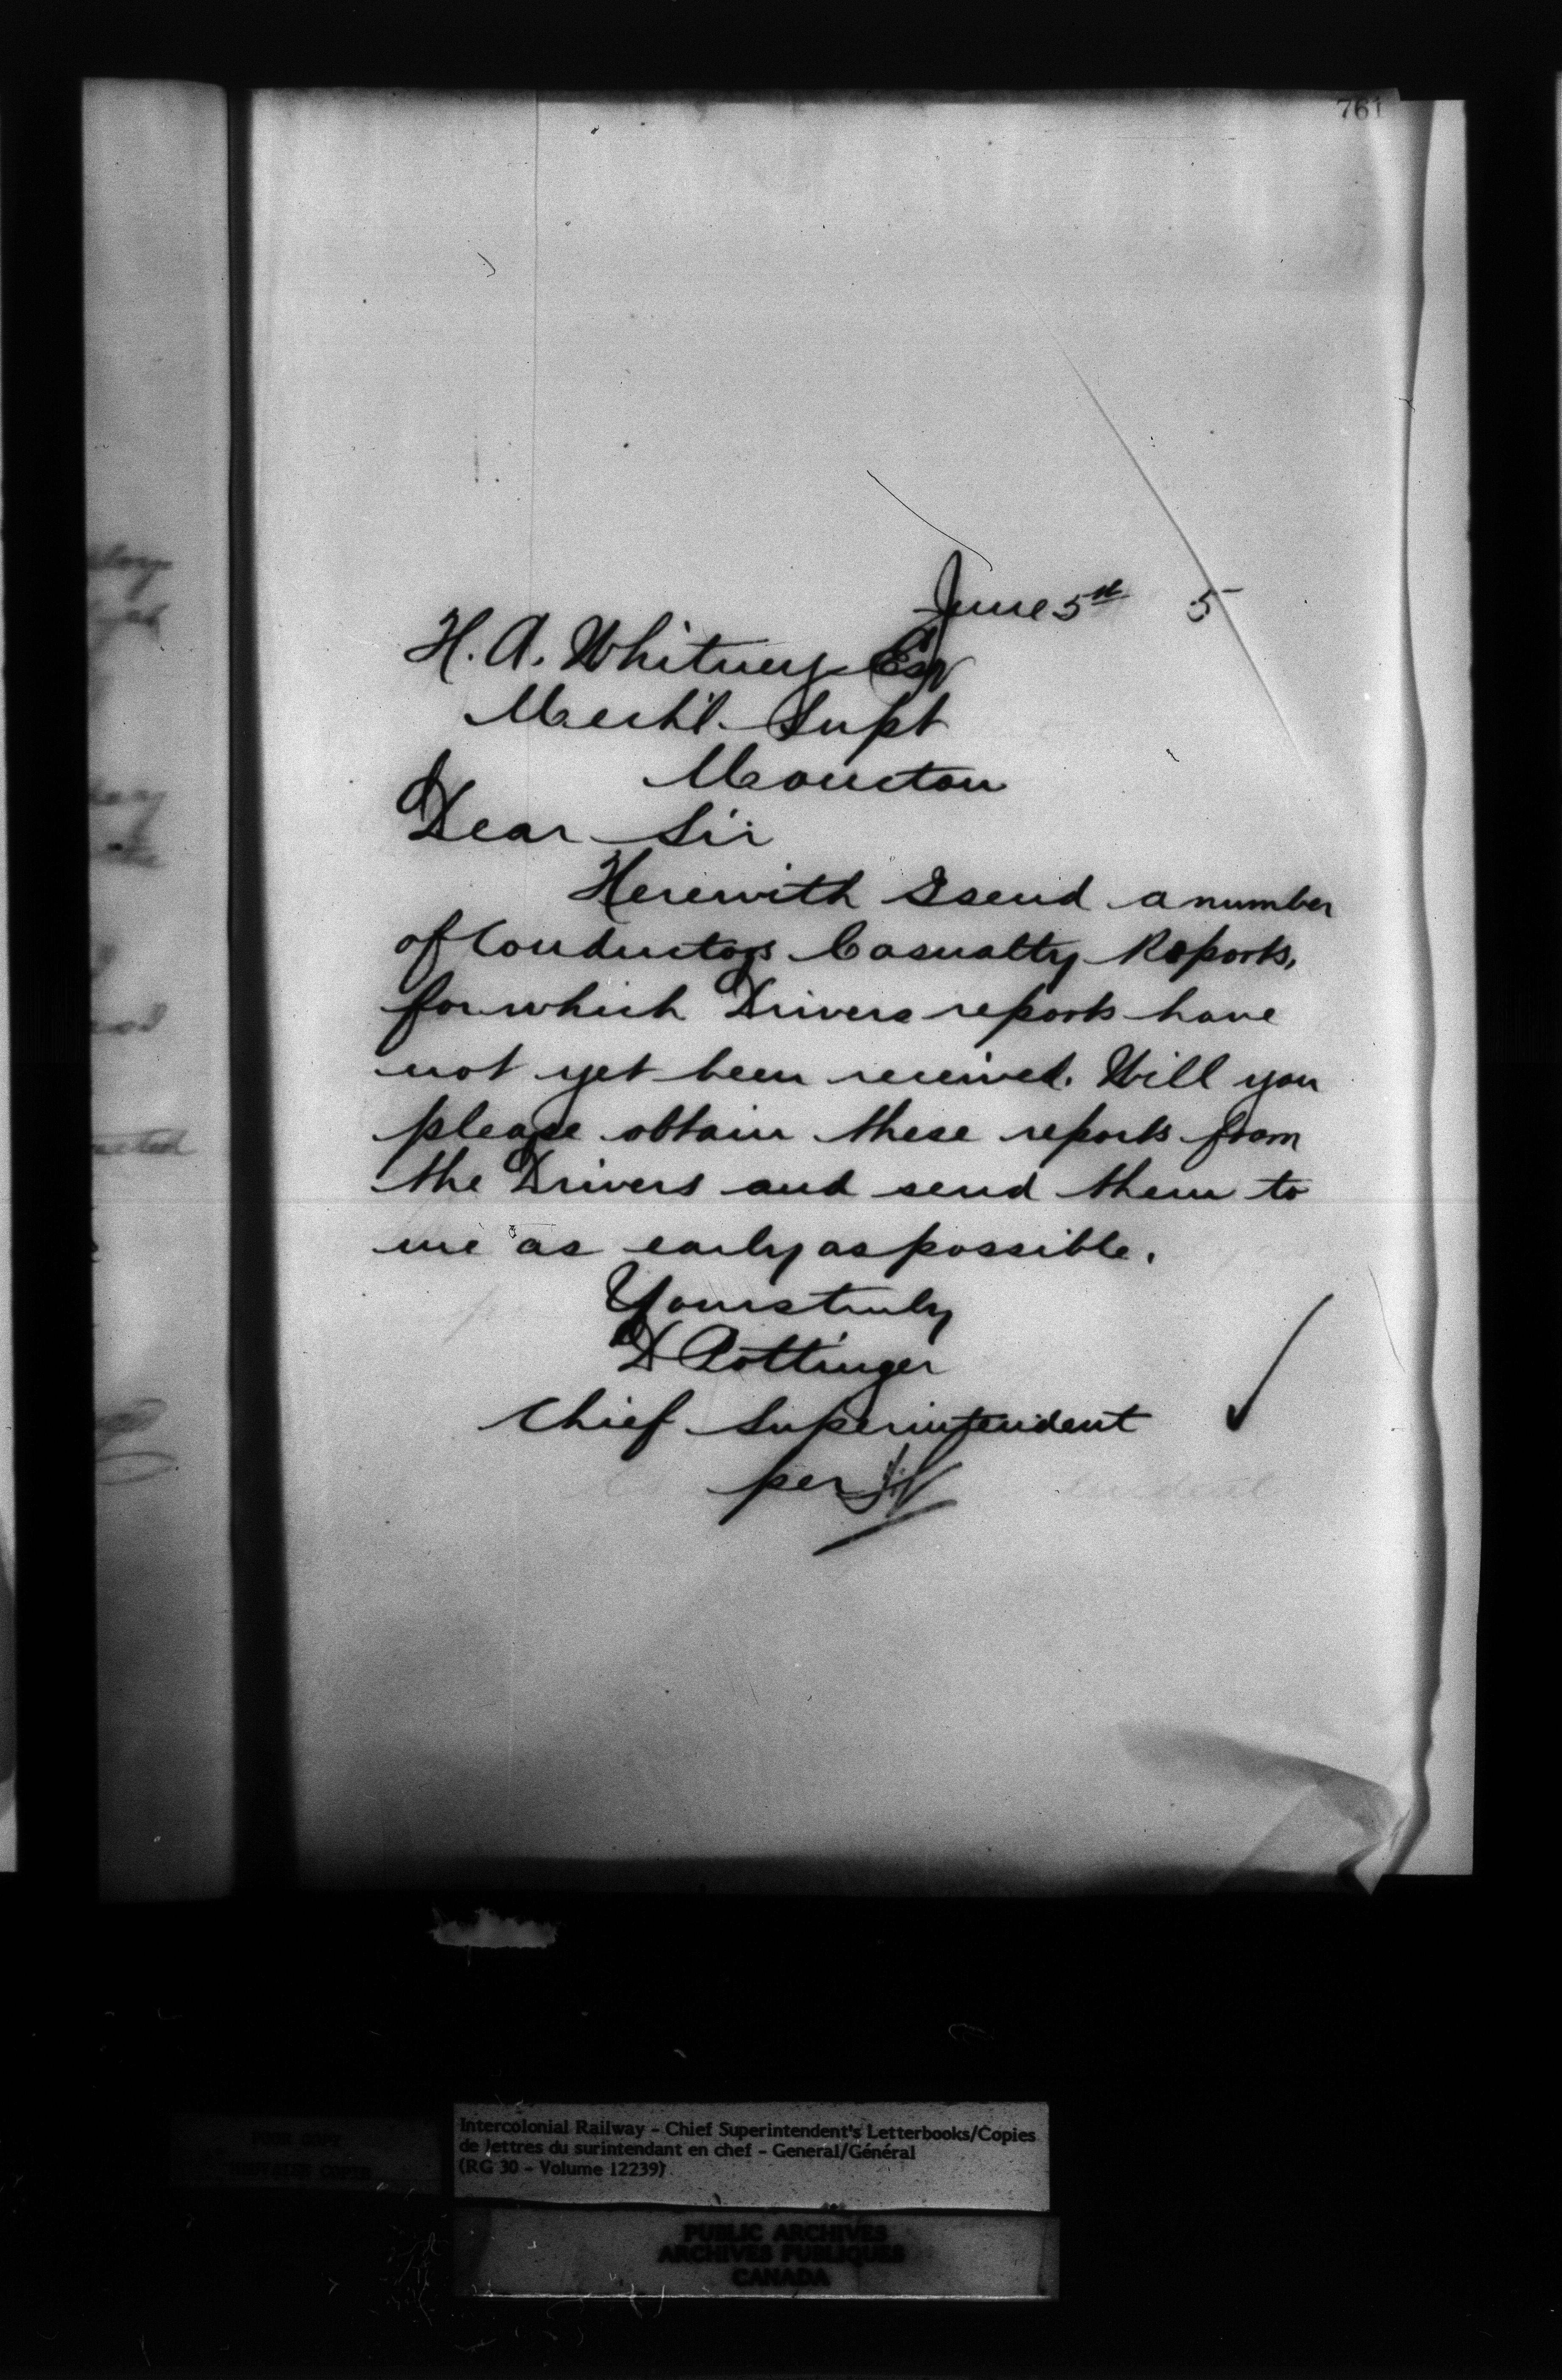 761
June 5th 5
H. A. Whitney Esq
Mechl. Supt
Moncton
Dear Sir
Herewith I send a number
of Conductors Casualty Reports,
for which Drivers reports have
not yet been received. Will you
please obtain these reports from
the Drivers and send them to
me as early as possible.
Yours truly
D Pottinger
Chief Superintendent
per
Intercolonial Railway - Chief Superintendent's Letterbooks/Copies
de lettres du surintendant en chef - General/Général
(RG 30 - Volume 12239)
POOR COPY
MAUVAISE COPIE
PUBLIC ARCHIVES
ARCHIVES PUBLIQUES
CANADA